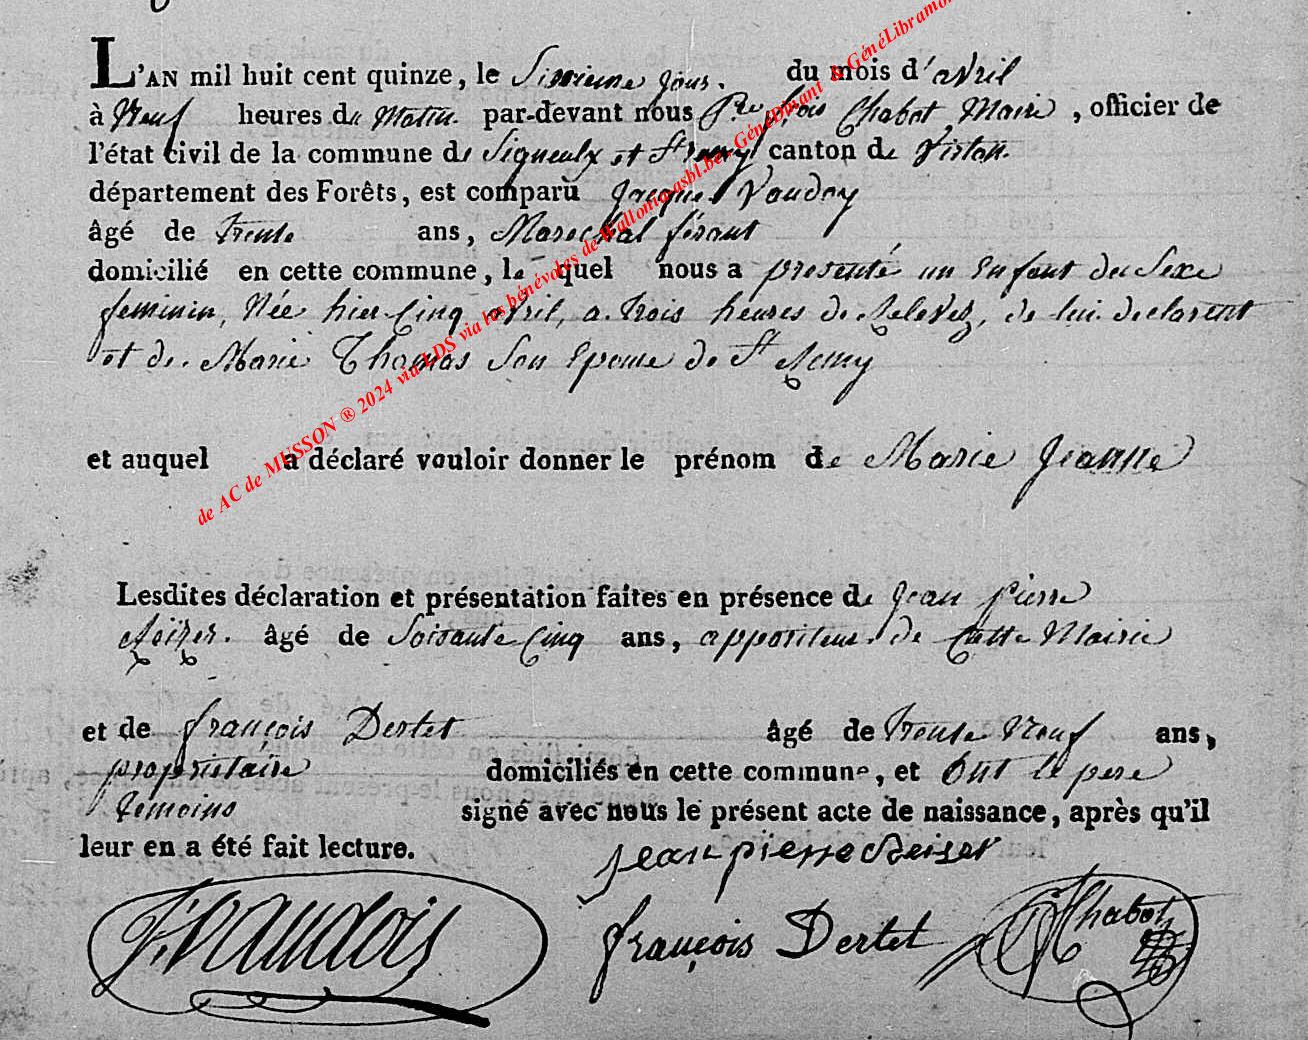 L'AN mil huit cent quinze, le Sixieme jour. du mois d'avril
à Neuf heures du Matin. par-devant nous Pre fçois Chabot Maire, officier de
l'état civil de la commune de Signeulx et St remy canton de Virton.
département des Forêts, est comparu Jacque Vauday
âgé de trente ans, Marechal férant
domicilié en cette commune, le quel nous a presenté un Enfant du Sexe
feminin, Née hier Cinq avril, a trois heures de Relevez, de lui declarent
et de Marie Thomas Son Epouse de St Remy
et auquel a déclaré vouloir donner le prénom de Marie Jeanne
Lesdites déclaration et présentation faites en présence de Jean pierre
Reizer. âgé de Soisante Cinq ans, appositeur de Cette Mairie
et de françois Dertet âgé de trente Neuf ans,
propriétaire domiciliés en cette commune, et Ont le pere
temoins signé avec nous le présent acte de naissance, après qu'il
leur en a été fait lecture.
jean pierre Reiser
J. vaudois françois Dertet Chabot
de AC de MUSSON ® 2024 via LDS via les bénévoles de Wallonia-asbl.be, GénéDinant & GénéLibramo